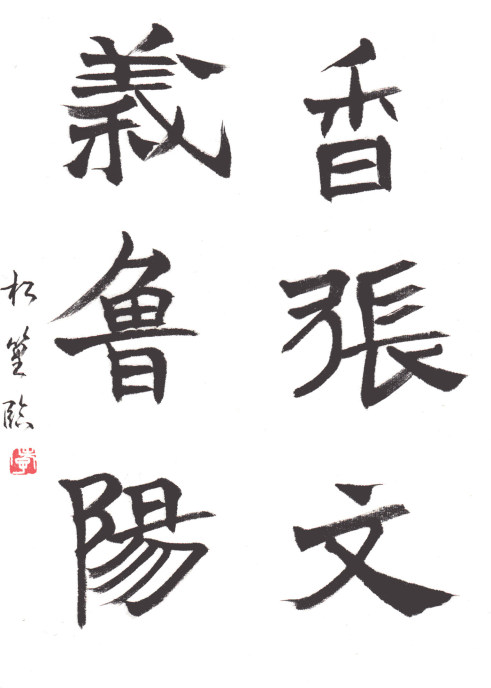 香張文
義魯陽
松篁臨